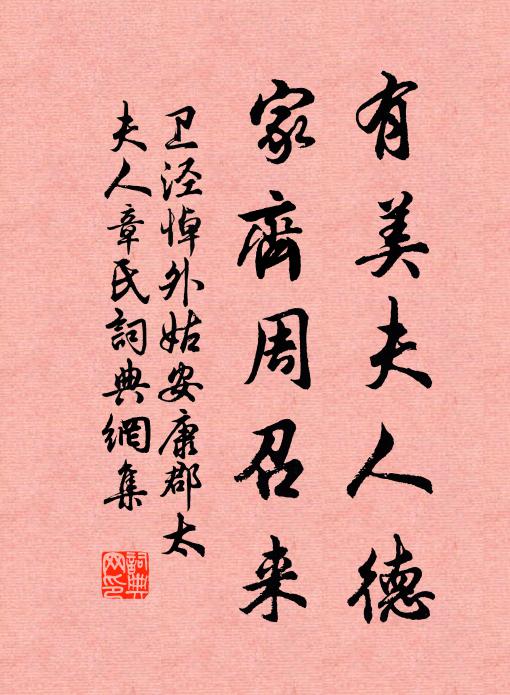 有美夫人德
家齊周召来
卫泾悼外姑安康郡太
夫人章氏詞典網集
詞典
网印